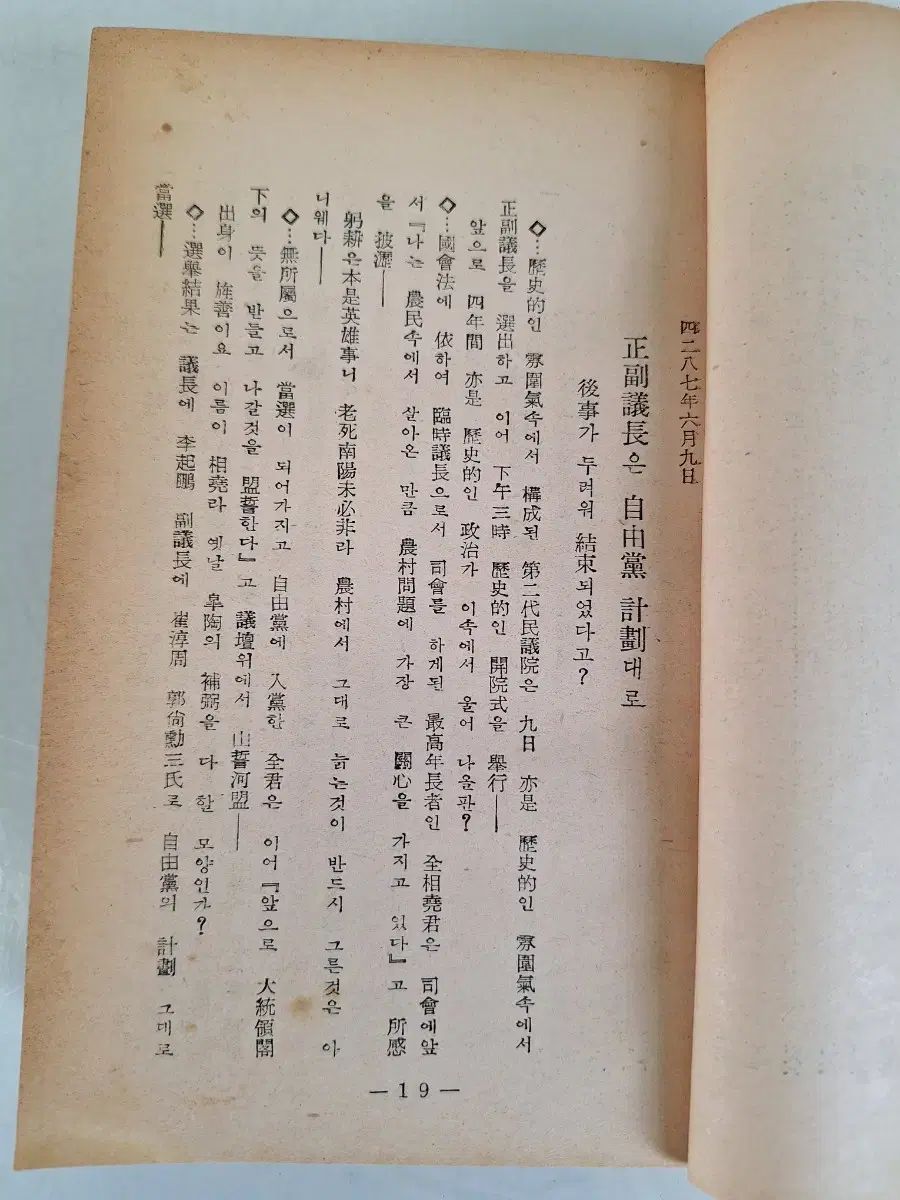 四二八七年六月九日
正副議長은 自由黨 計劃대로
後事가 두려워 結束되었다고?
◇…歷史的인 雰圍氣속에서 構成된 第二代民議院은 九日 亦是 歷史的인 雰圍氣속에서
正副議長을 選出하고 이어 下午三時 歷史的인 開院式을 舉行——
앞으로 四年間 亦是 歷史的인 政治가 이속에서 울어 나올판?
◇…國會法에 依하여 臨時議長으로서 司會를 하게된 最高年長者인 全相堯君은 司會에앞
서『나는 農民속에서 살아온 만큼 農村問題에 가장 큰 關心을 가지고 있다』고 所感
을 披瀝——
躬耕은本是英雄事니 老死南陽未必非라 農村에서 그대로 늙는것이 반드시 그른것은 아
니웨다——
◇…無所屬으로서 當選이 되어가지고 自由黨에 入黨한 全君은 이어『앞으로 大統領閣
下의 뜻을 받들고 나갈것을 盟誓한다』고 議壇위에서 山誓河盟——
出身이 旌善이요 이름이 相堯라 옛날 皐陶의 補弼을 다 할 모양인가?
◇…選舉結果는 議長에 李起鵬 副議長에 崔淳周 郭尙勳三氏로 自由黨의 計劃 그대로
當選——
— 19 —